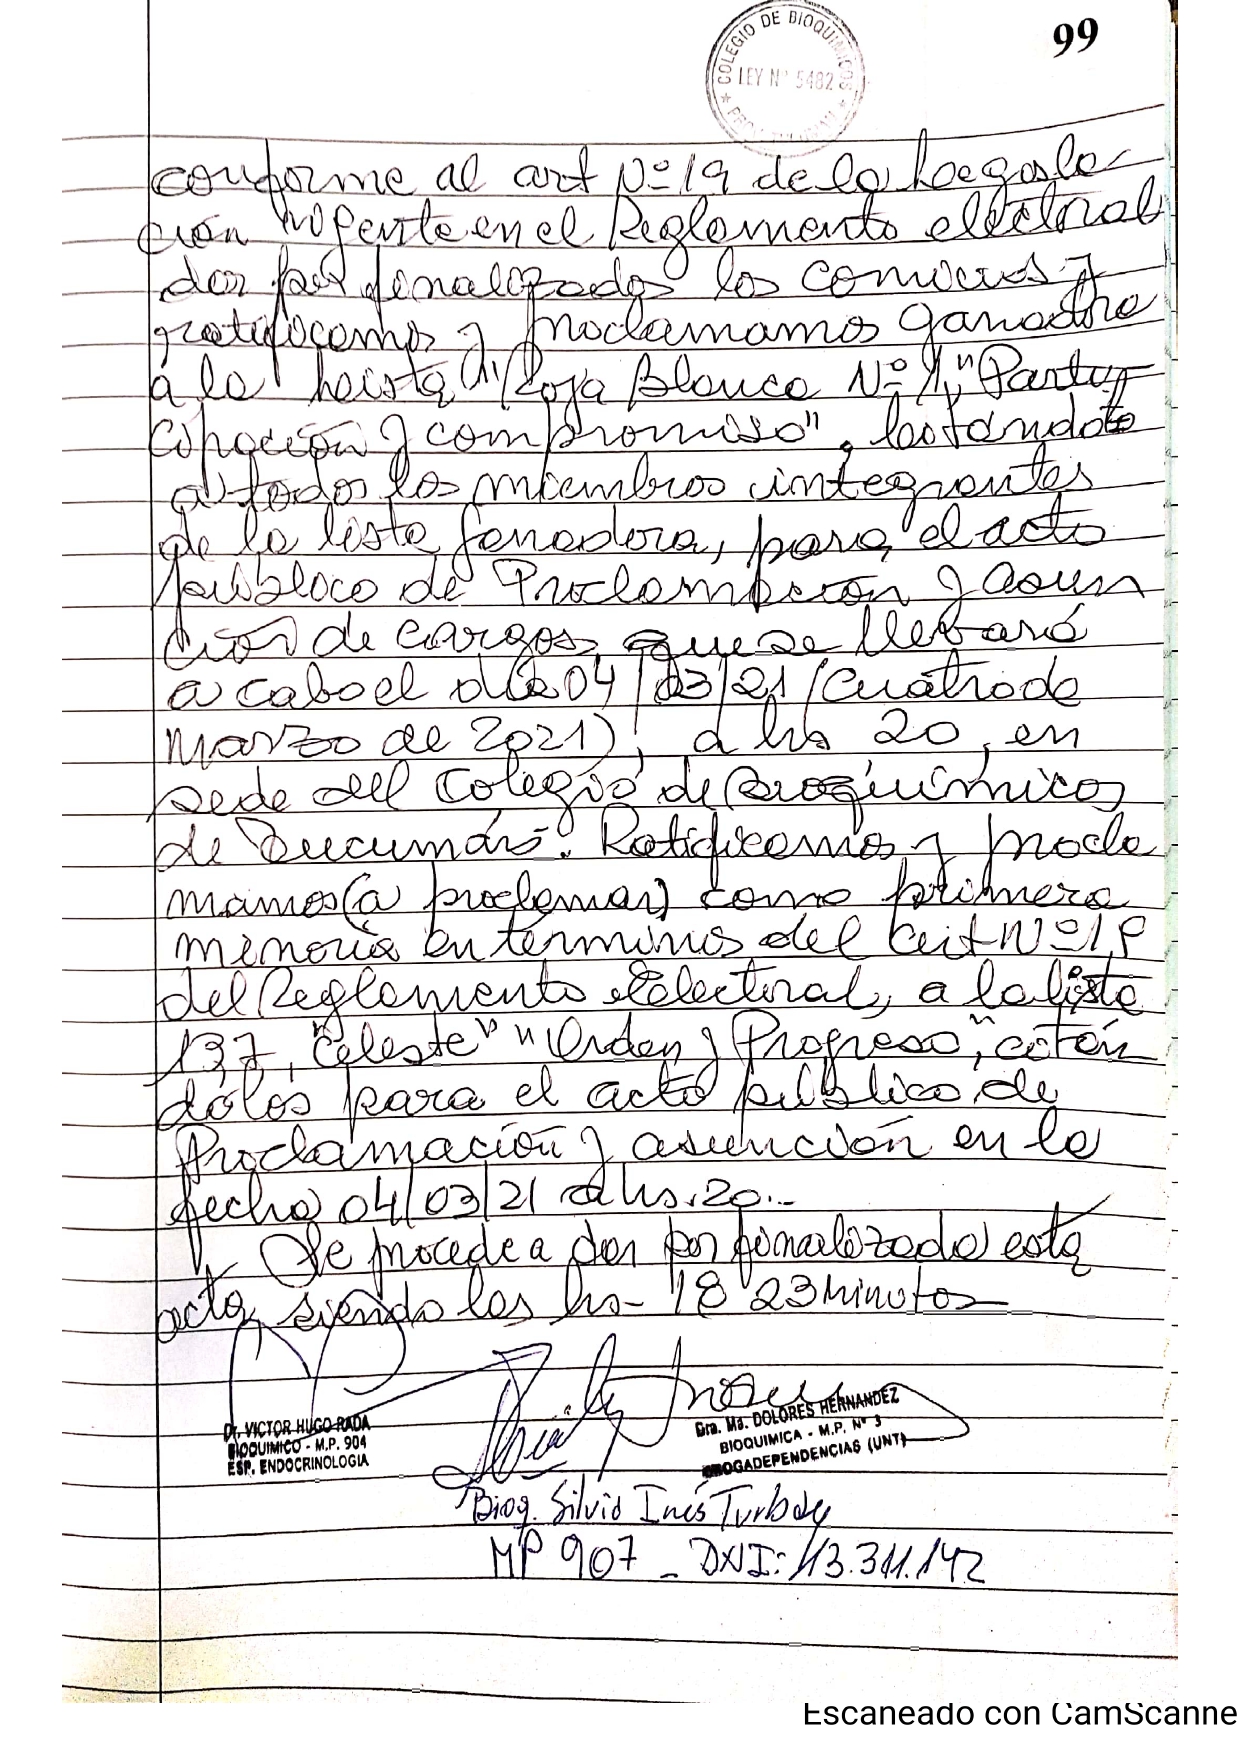 99
COLEGIO DE BIOQUIMICOS
LEY Nº 5482
conforme al art Nº 19 de la Legasla
ción vigente en el Reglamento electoral
dar por finalizados los comicios y
ratificamos y proclamamos ganadora
a la Lista "Roja Blanca Nº 1," "Parti
cipación y compromiso", 
a todos los miembros integrantes
de la lista ganadora, para el acto
público de Proclamación y asun
ción de cargos que se llevará
a cabo el día 04/03/21 (Cuatro de
Marzo de 2021), a hs 20, en
sede del Colegio de Bioquímicos
de Tucumán. Ratificamos y procla
mamos (a proclamar) como primera
menoria en terminos del Art Nº
del Reglamento Electoral, a la lista
137, "Celeste" "Orden y Progreso", citán
dolos para el acto público de
Proclamación y asunción en la
fecha 04/03/21 a hs. 20.-
Se procede a dar por finalizado esta
acta, siendo las hs- 18 23 minutos
Dr. VICTOR HUGO RADA
BIOQUIMICO - M.P. 904
ESP. ENDOCRINOLOGIA
Dra. Ma. DOLORES HERNANDEZ
BIOQUIMICA - M.P. Nº 3
DROGADEPENDENCIAS (UNT)
Bioq. Silvia Inés Turbay
MP 907 - DNI: 13.311.142
Escaneado con CamScanne